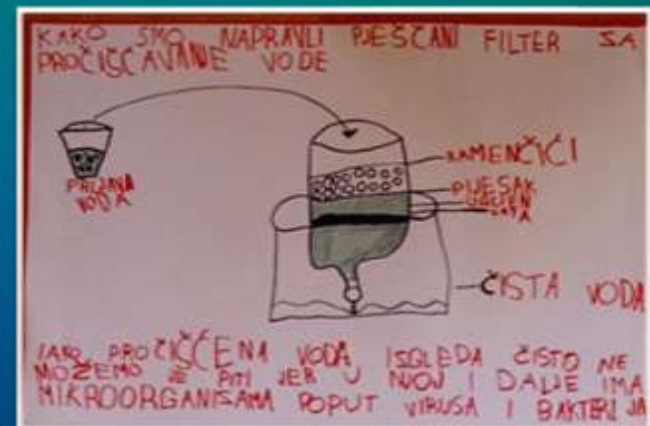 KAKO SMO NAPRAVLI PJEŠČANI FILTER SA
PROČIŠĆAVANJE VODE
PRLJAVA
VODA
KAMENČIĆI
PIJESAK
UGLJEN
VATA
ČISTA VODA
IAKO PROČIŠĆENA VODA ISGLEDA ČISTO NE
MOŽEMO JE PITI JER U NJOJ I DALJE IMA
MIKROORGANISAMA POPUT VIRUSA I BAKTERIJA